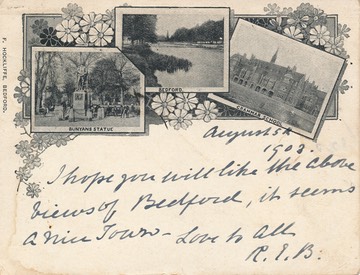 F. HOCKLIFFE, BEDFORD.
BEDFORD
BUNYANS STATUE
GRAMMAR SCHOOL
August 5th
1902.
I hope you will like the above
views of Bedford, it seems
a nice Town - Love to all
R. E. B.